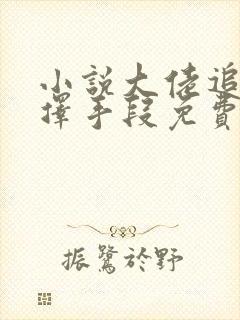 小說大佬追
擇手段免費
振鷺於野